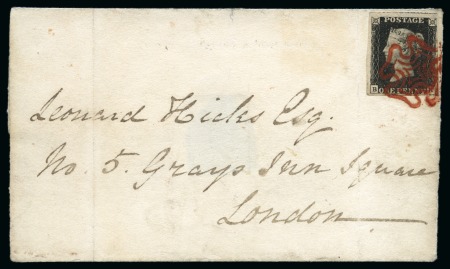 POSTAGE
B
Leonard Hicks Esq.
No. 5. Grays Inn Square
London